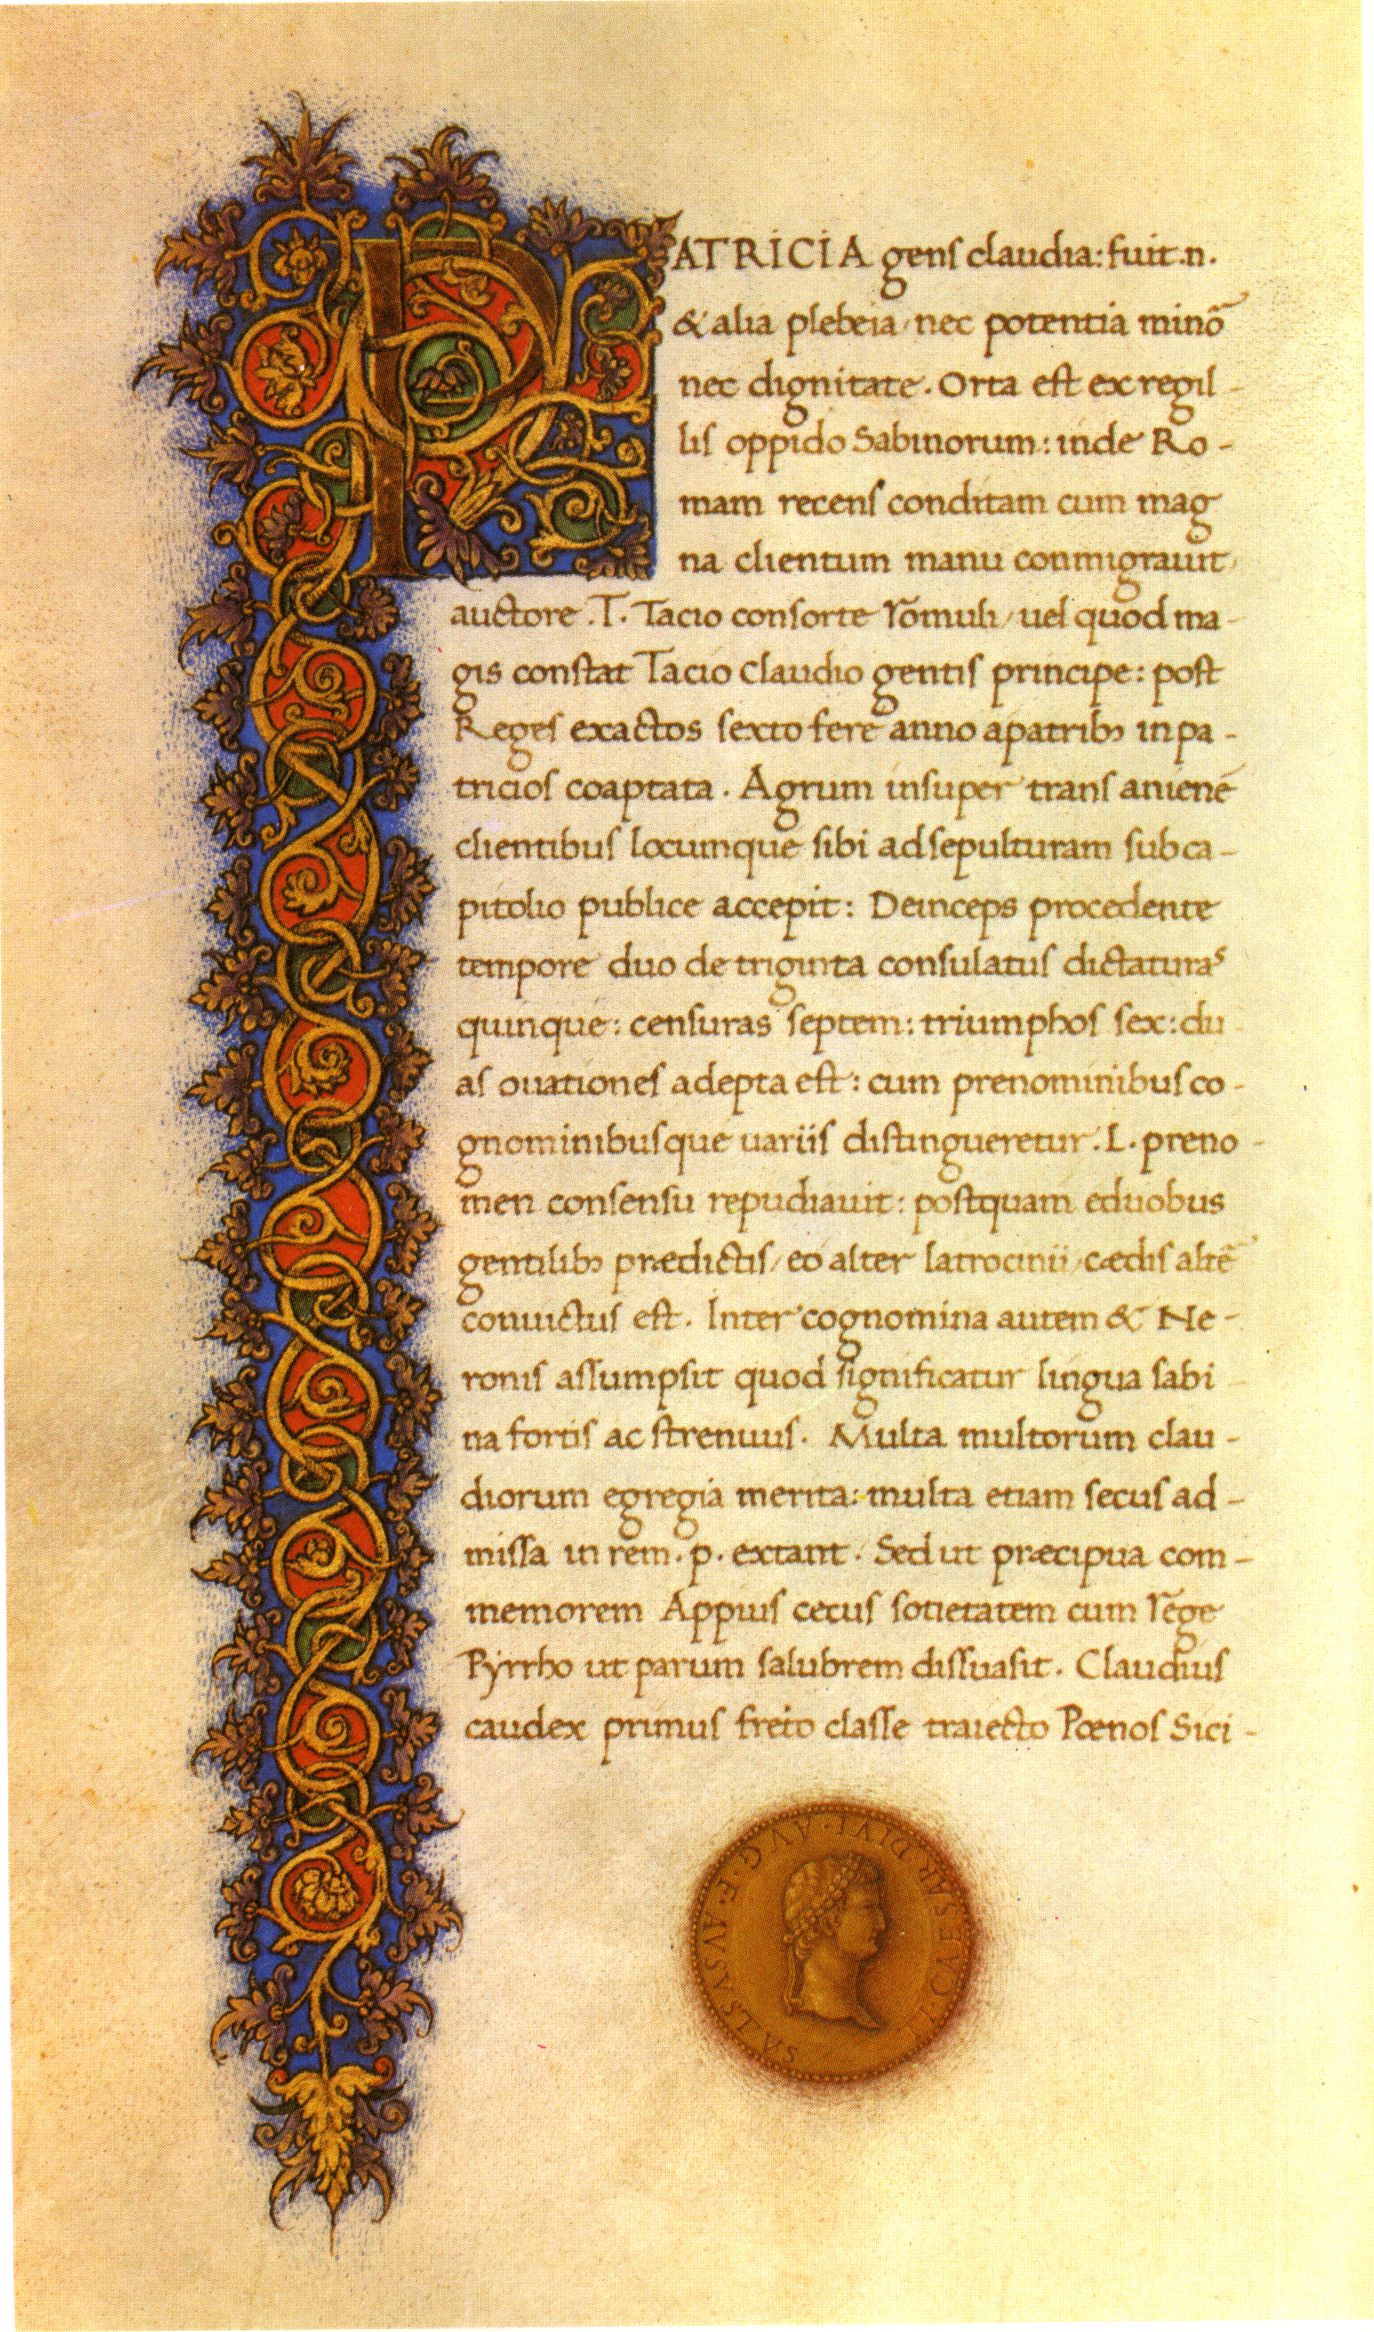 PATRICIA gens claudia: fuit .n.
& alia plebeia / nec potentia minõ
nec dignitate. Orta est ex regil-
lis oppido Sabinorum: inde Ro-
mam recens conditam cum mag
na clientum manu conmigrauit /
auctore .T. Tacio consorte Rõmuli / uel quod ma-
gis constat Tacio Claudio gentis principe: post
Reges exactos sexto fere anno apatribꝫ in pa-
tricios coaptata. Agrum insuper trans anienē
clientibus locumque sibi ad sepulturam sub ca-
pitolio publice accepit: Deinceps procedente
tempore duo de triginta consulatus dictaturas
quinque: censuras septem: triumphos sex: du
as ouationes adepta est: cum prenominibus co-
gnominibusque uariis distingueretur. L. preno-
men consensu repudiauit: postquam eduobus
gentilibꝫ prædictis / eo alter latrocinii / cædis altē
conuictus est. Inter cognomina autem & Ne-
ronis assumpsit quod significatur lingua sabi-
na fortis ac strenuus. Multa multorum clau-
diorum egregia merita: multa etiam secus ad-
missa in rem .p. extant. Sed ut præcipua com-
memorem Appius cecus sotietatem cum Rēge
Pyrrho ut parum salubrem dissuasit. Claudius
caudex primus freto classe traiecto Pœnos Sici-
TI CAESAR DIVI AVG F AVGVSTVS